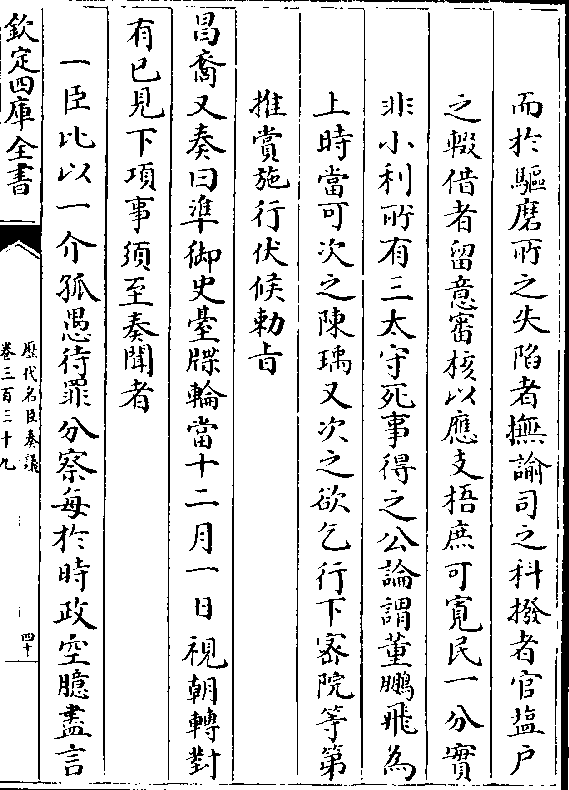 而於驅磨所之失陷者撫諭司之科撥者官塩戸
之輟借者留意審核以應支梧庶可寛民一分實
非小利所有三太守死事得之公論謂董鵬飛為
上時當可次之陳瑀又次之欲乞行下宻院等第
推賞施行伏候勅㫖
昌裔又奏曰準御史臺牒輪當十二月一日視朝轉對
有已見下項事須至奏聞者
一臣比以一介孤愚待罪分察每於時政空臆盡言
欽定四庫全書
歴代名臣奏議
卷三百三十九
四十